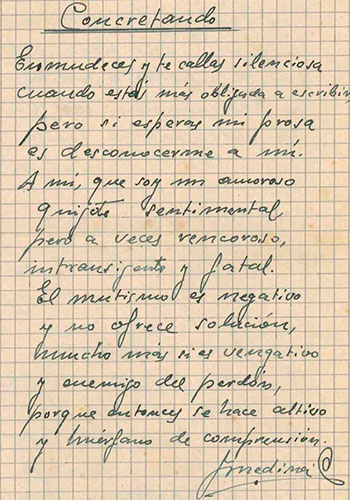 Concretando
Enmudeces y te callas silenciosa
cuando estás más obligada a escribir
pero si esperas mi prosa
es desconocerme a mí.
A mí, que soy un amoroso
quijote sentimental,
pero a veces rencoroso,
intransigente y fatal.
El mutismo es negativo
y no ofrece solución,
mucho más si es vengativo
y enemigo del perdón,
porque entonces se hace altivo
y huérfano de comprensión.
Jmedina